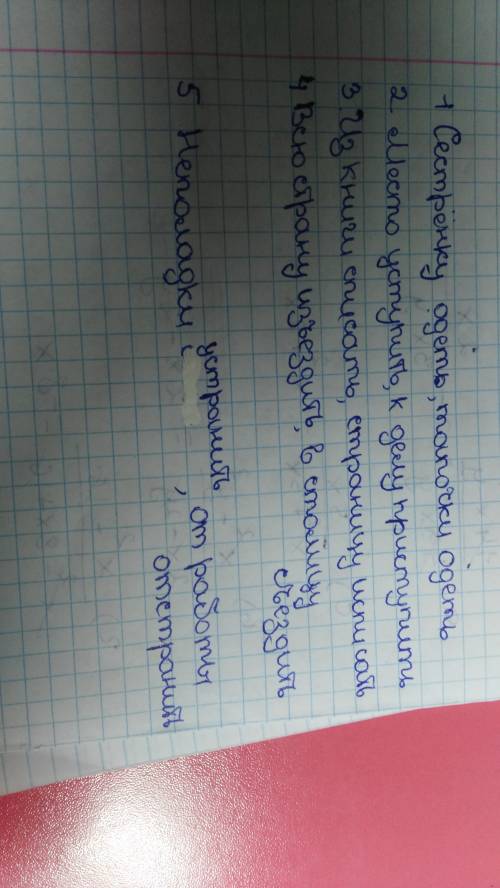 1 Сестрёнку одеть, тапочки одеть
2 Место уступить, к делу приступить
3 Из книги списать, страницу исписать
4 Всю страну изъездить, в столицу
съездить
5 Неполадки устранить, от работы
отстранить